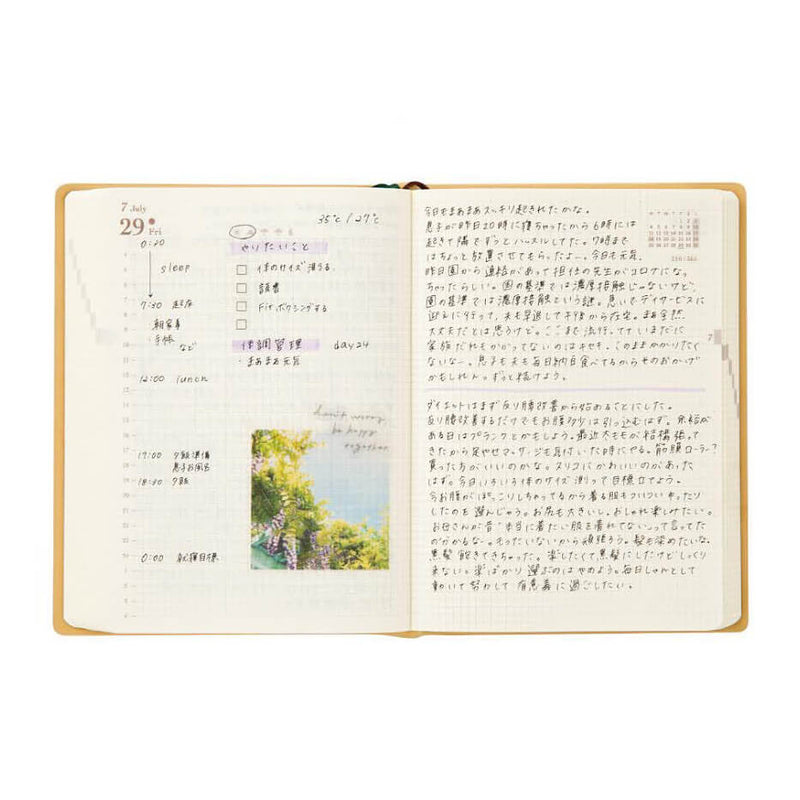 7 July
29 Fri
35℃ / 27℃
0:20
sleep
7:30 起床
朝家事
・手帳
など
12:00 lunch
17:00 夕飯準備
息子お風呂
18:30 夕飯
0:00 就寝目標
やりたいこと
体のサイズ測る
読書
Fitボクシングする
体調管理 day24
・まあまあ元気
don't worry
be happy
together
今日もまあまあスッキリ起きれたかな。
息子が昨日20時に寝ちゃったから6時には
起きて隣でずっとハッスルしてた。7時まで
はちょっと放置させてもらったよー。今日も元気。
昨日園から連絡があって担任の先生がコロナになっ
ちゃったらしい。国の基準では濃厚接触じゃないけど、
園の基準では濃厚接触という謎。急いでデイサービスに
迎えに行って、夫も早退して午後から在宅。まぁ全然
大丈夫だとは思うけど。ここまで流行ってていまだに
家族だれもかかってないのはキセキ。このままかかりたく
ないなー。息子も夫も毎日納豆食べてるからそのおかげ
かもしれん。ずっと続けよう。
ダイエットはまず反り腰改善から始めることにした。
反り腰改善するだけでもお腹多少は引っ込むはず。余裕が
ある日はプランクとかもしよう。最近太ももが結構張って
きたから足やせマッサージも気付いた時にやる。筋膜ローラー?
買った方がいいのかな。スリコにかわいいのがあった
はず。今日いろいろ体のサイズ測って目標立てよう。
今お腹がぽっこりしちゃってるから着る服もついついゆったり
したのを選んじゃう。お尻も大きいし。おしゃれ楽しみたい。
お母さんが昔"本当に着たい服を着れてない"って言ってた
のがわかるなー。もったいないから頑張ろう。髪も染めたいな。
黒髪飽きてきちゃった。楽したくて黒髪にしたけどしっくり
来ない。楽ばかり選ぶのはやめよう。毎日しゃんとして
動いて努力して有意義に過ごしたい。